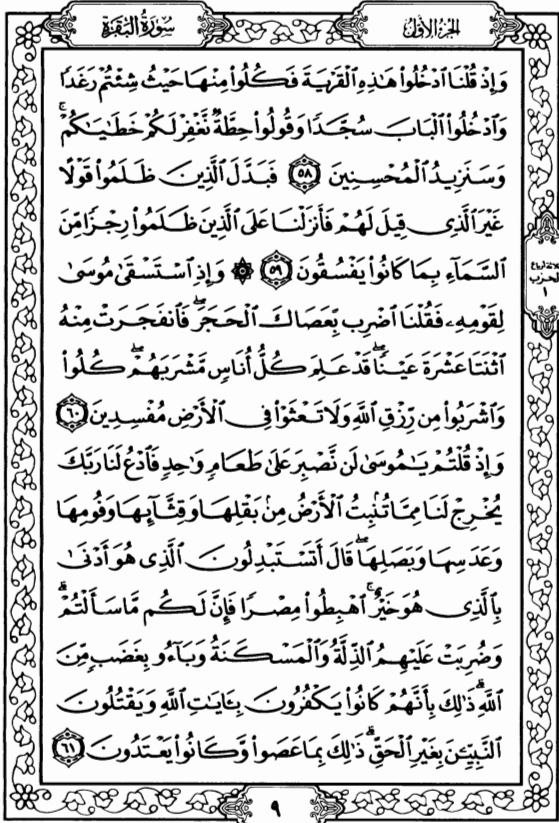 الجزء الأول
سورة البقرة
وَإِذْ قُلْنَا ادْخُلُوا هَٰذِهِ الْقَرْيَةَ فَكُلُوا مِنْهَا حَيْثُ شِئْتُمْ رَغَدًا
وَادْخُلُوا الْبَابَ سُجَّدًا وَقُولُوا حِطَّةٌ نَّغْفِرْ لَكُمْ خَطَايَاكُمْ ۚ
وَسَنَزِيدُ الْمُحْسِنِينَ ٥٨ فَبَدَّلَ الَّذِينَ ظَلَمُوا قَوْلًا
غَيْرَ الَّذِي قِيلَ لَهُمْ فَأَنزَلْنَا عَلَى الَّذِينَ ظَلَمُوا رِجْزًا مِّنَ
السَّمَاءِ بِمَا كَانُوا يَفْسُقُونَ ٥٩ ۞ وَإِذِ اسْتَسْقَىٰ مُوسَىٰ
لِقَوْمِهِ فَقُلْنَا اضْرِب بِّعَصَاكَ الْحَجَرَ ۖ فَانفَجَرَتْ مِنْهُ
اثْنَتَا عَشْرَةَ عَيْنًا ۖ قَدْ عَلِمَ كُلُّ أُنَاسٍ مَّشْرَبَهُمْ ۖ كُلُوا
وَاشْرَبُوا مِن رِّزْقِ اللَّهِ وَلَا تَعْثَوْا فِي الْأَرْضِ مُفْسِدِينَ ٦٠
وَإِذْ قُلْتُمْ يَا مُوسَىٰ لَن نَّصْبِرَ عَلَىٰ طَعَامٍ وَاحِدٍ فَادْعُ لَنَا رَبَّكَ
يُخْرِجْ لَنَا مِمَّا تُنبِتُ الْأَرْضُ مِن بَقْلِهَا وَقِثَّائِهَا وَفُومِهَا
وَعَدَسِهَا وَبَصَلِهَا ۖ قَالَ أَتَسْتَبْدِلُونَ الَّذِي هُوَ أَدْنَىٰ
بِالَّذِي هُوَ خَيْرٌ ۚ اهْبِطُوا مِصْرًا فَإِنَّ لَكُم مَّا سَأَلْتُمْ ۗ
وَضُرِبَتْ عَلَيْهِمُ الذِّلَّةُ وَالْمَسْكَنَةُ وَبَاءُو بِغَضَبٍ مِّنَ
اللَّهِ ۗ ذَٰلِكَ بِأَنَّهُمْ كَانُوا يَكْفُرُونَ بِآيَاتِ اللَّهِ وَيَقْتُلُونَ
النَّبِيِّينَ بِغَيْرِ الْحَقِّ ۗ ذَٰلِكَ بِمَا عَصَوا وَّكَانُوا يَعْتَدُونَ ٦١
الحزب
١
٩